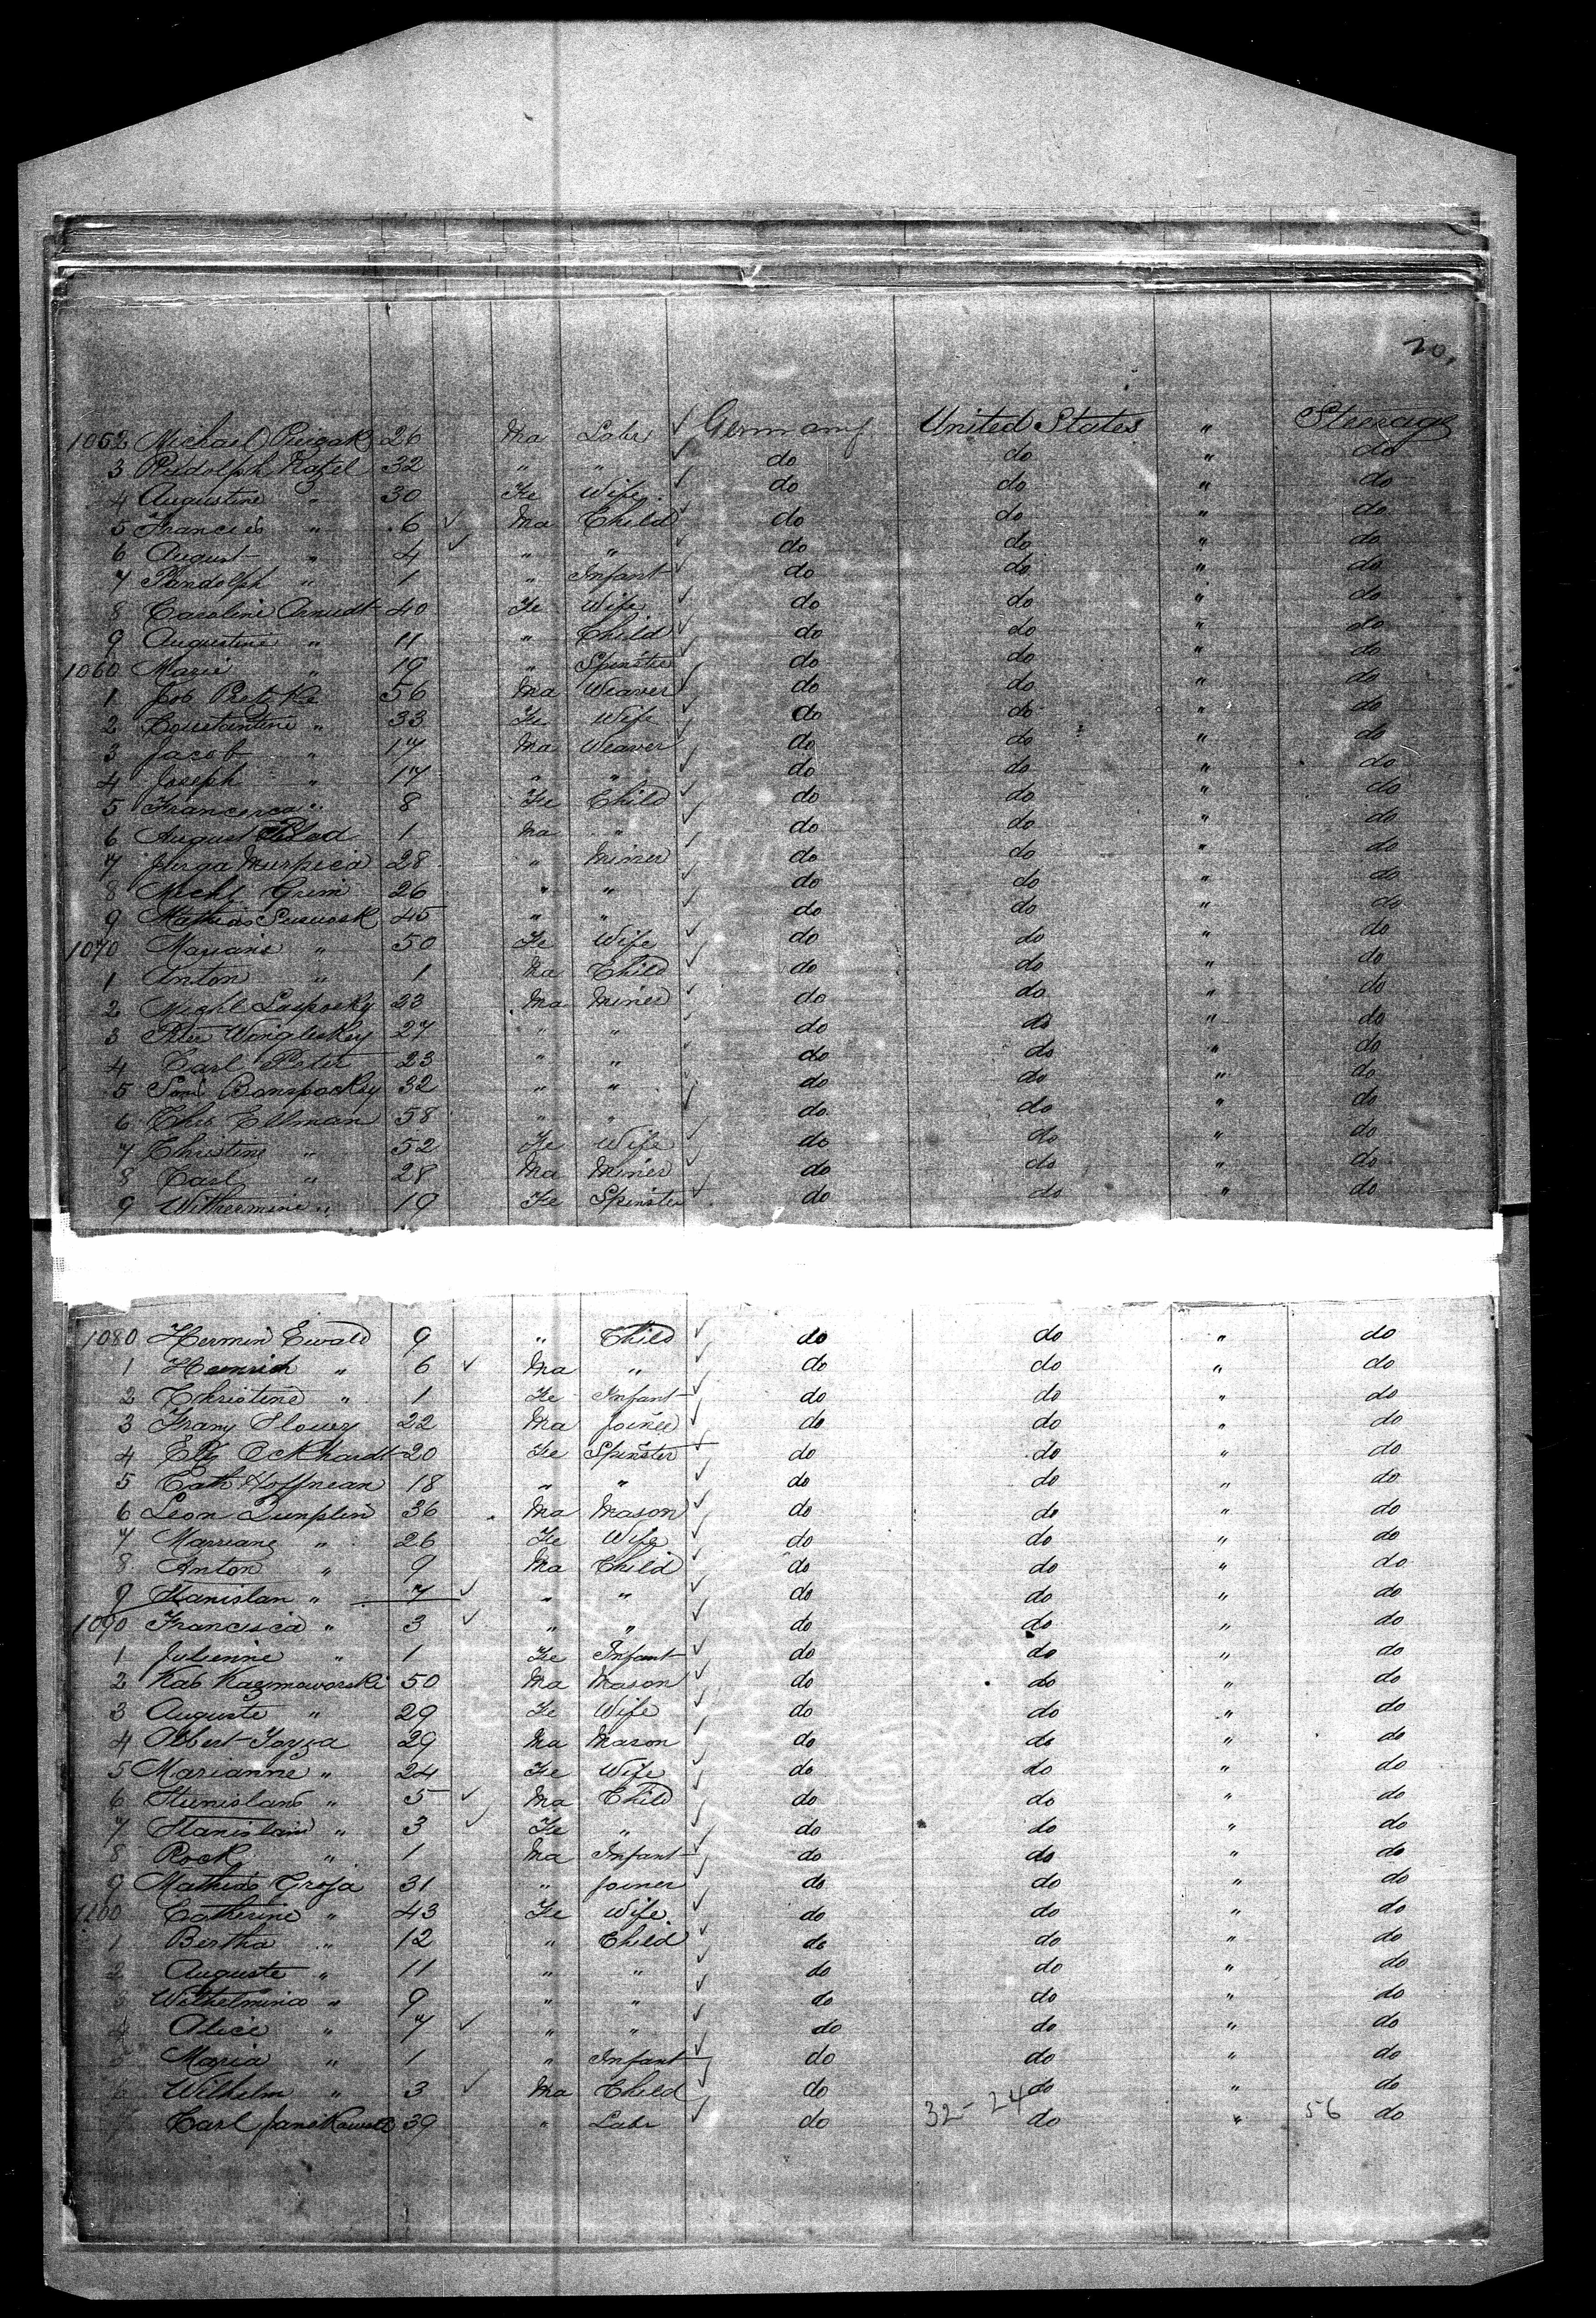 20.
1052 Michael 26 Ma Labr ✓ Germany United States " Steerage
3 Rudolph Katzel 32 " " ✓ do do " do
4 Augustine " 30 Fe Wife ✓ do do " do
5 Francies " 6 ✓ Ma Child ✓ do do " do
6 August " 4 ✓ " " ✓ do do " do
7 Randolph " 1 " Infant ✓ do do " do
8 Caroline Arnudt 40 Fe Wife ✓ do do " do
9 Augustine " 11 " Child ✓ do do " do
1060 Marie " 19 " Spinster ✓ do do " do
1 Job Pretzke 56 Ma Weaver ✓ do do " do
2 Constantine " 33 Fe Wife ✓ do do " do
3 Jacob " 17 Ma Weaver ✓ do do " do
4 Joseph " 17 " " ✓ do do " do
5 Francisca " 8 Fe Child ✓ do do " do
6 August 1 Ma " ✓ do do " do
7 Jurga Murpica 28 " Miner ✓ do do " do
8 Michl Grim 26 " " ✓ do do " do
9 Mathias 45 " " ✓ do do " do
1070 Mariane " 50 Fe Wife ✓ do do " do
1 Anton " 1 Ma Child ✓ do do " do
2 Michl Lasposky 23 Ma Miner ✓ do do " do
3 Peter Wongleskey 27 " " do do " do
4 Carl Peter 23 " " do do " do
5 Bonspocksy 32 " " ✓ do do " do
6 Chrs Ellman 58 " " ✓ do do " do
7 Christine " 52 Fe Wife ✓ do do " do
8 Carl " 28 Ma Miner ✓ do do " do
9 Withermine " 19 Fe Spinster ✓ do do " do
1080 Hermin Ewald 9 " Child ✓ do do " do
1 Heinrich " 6 ✓ Ma " ✓ do do " do
2 Christine " 1 Fe Infant ✓ do do " do
3 Franz Slowry 22 Ma Joiner ✓ do do " do
4 Elz Ockhardt 20 Fe Spinster ✓ do do " do
5 Cath Hoffnean 18 " " ✓ do do " do
6 Leon Lunplin 36 Ma Mason ✓ do do " do
7 Marriane " 26 Fe Wife ✓ do do " do
8 Anton " 9 Ma Child ✓ do do " do
9 Stanislan " 7 ✓ " " ✓ do do " do
1090 Francisca " 3 ✓ " " ✓ do do " do
1 Julienne " 1 Fe Infant ✓ do do " do
2 Kab Kazmoworski 50 Ma Mason ✓ do do " do
3 Auguste " 29 Fe Wife ✓ do do " do
4 Albert Toyza 29 Ma Mason ✓ do do " do
5 Marianne " 24 Fe Wife ✓ do do " do
6 Stunislans " 5 ✓ Ma Child ✓ do do " do
7 Stanislaw " 3 ✓ Fe " ✓ do do " do
8 Rock " 1 Ma Infant ✓ do do " do
9 Mathias Groja 31 " Joiner ✓ do do " do
1100 Catherine " 43 Fe Wife ✓ do do " do
1 Bertha " 12 " Child ✓ do do " do
2 Auguste " 11 " " ✓ do do " do
3 Wilhelmina " 9 " " ✓ do do " do
4 Alice " 7 ✓ " " ✓ do do " do
5 Maria " 1 " Infant ✓ do do " do
6 Wilhelm " 3 ✓ Ma Child ✓ do do " do
Carl 39 " Labr ✓ do 32- 24 do " 56 do